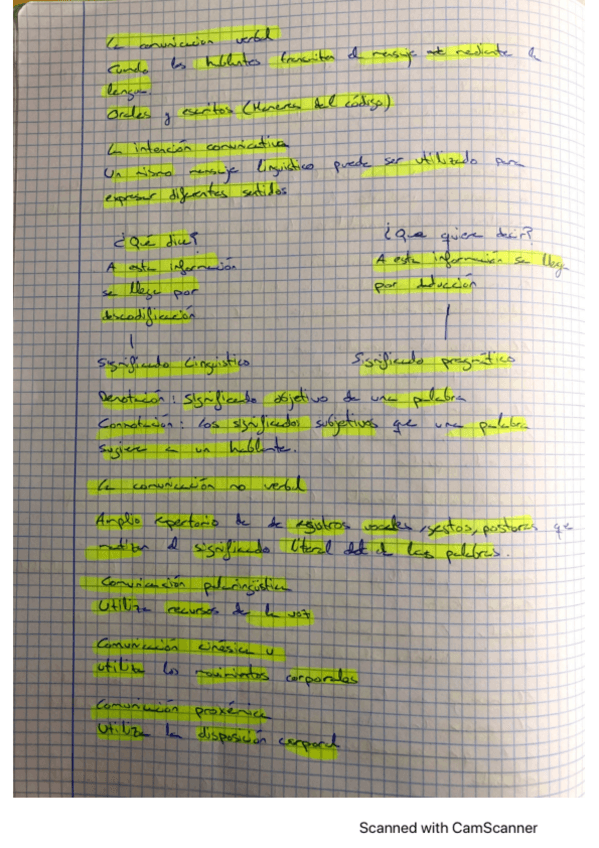 La comunicación verbal
Cuando los hablantes transmiten el mensaje mediante la
lengua
Orales y escritos (Maneras del código)
La intención comunicativa
Un mismo mensaje lingüístico puede ser utilizado para
expresar diferentes sentidos
¿Qué dice?
A esta información
se llega por
descodificación
Significado Lingüístico
¿Que quiere decir?
A esta información se llega
por deducción
Significado pragmático
Denotación: Significado objetivo de una palabra
Connotación: los significados subjetivos que una palabra
sugiere a un hablante.
La comunicación no verbal
Amplio repertorio de de registros vocales, gestos, posturas que
matizan el significado literal de las palabras.
Comunicación
Utiliza recursos de la voz
Comunicación cinésica
utiliza los movimientos corporales
Comunicación proxémica
Utiliza la disposición corporal
Scanned with CamScanner